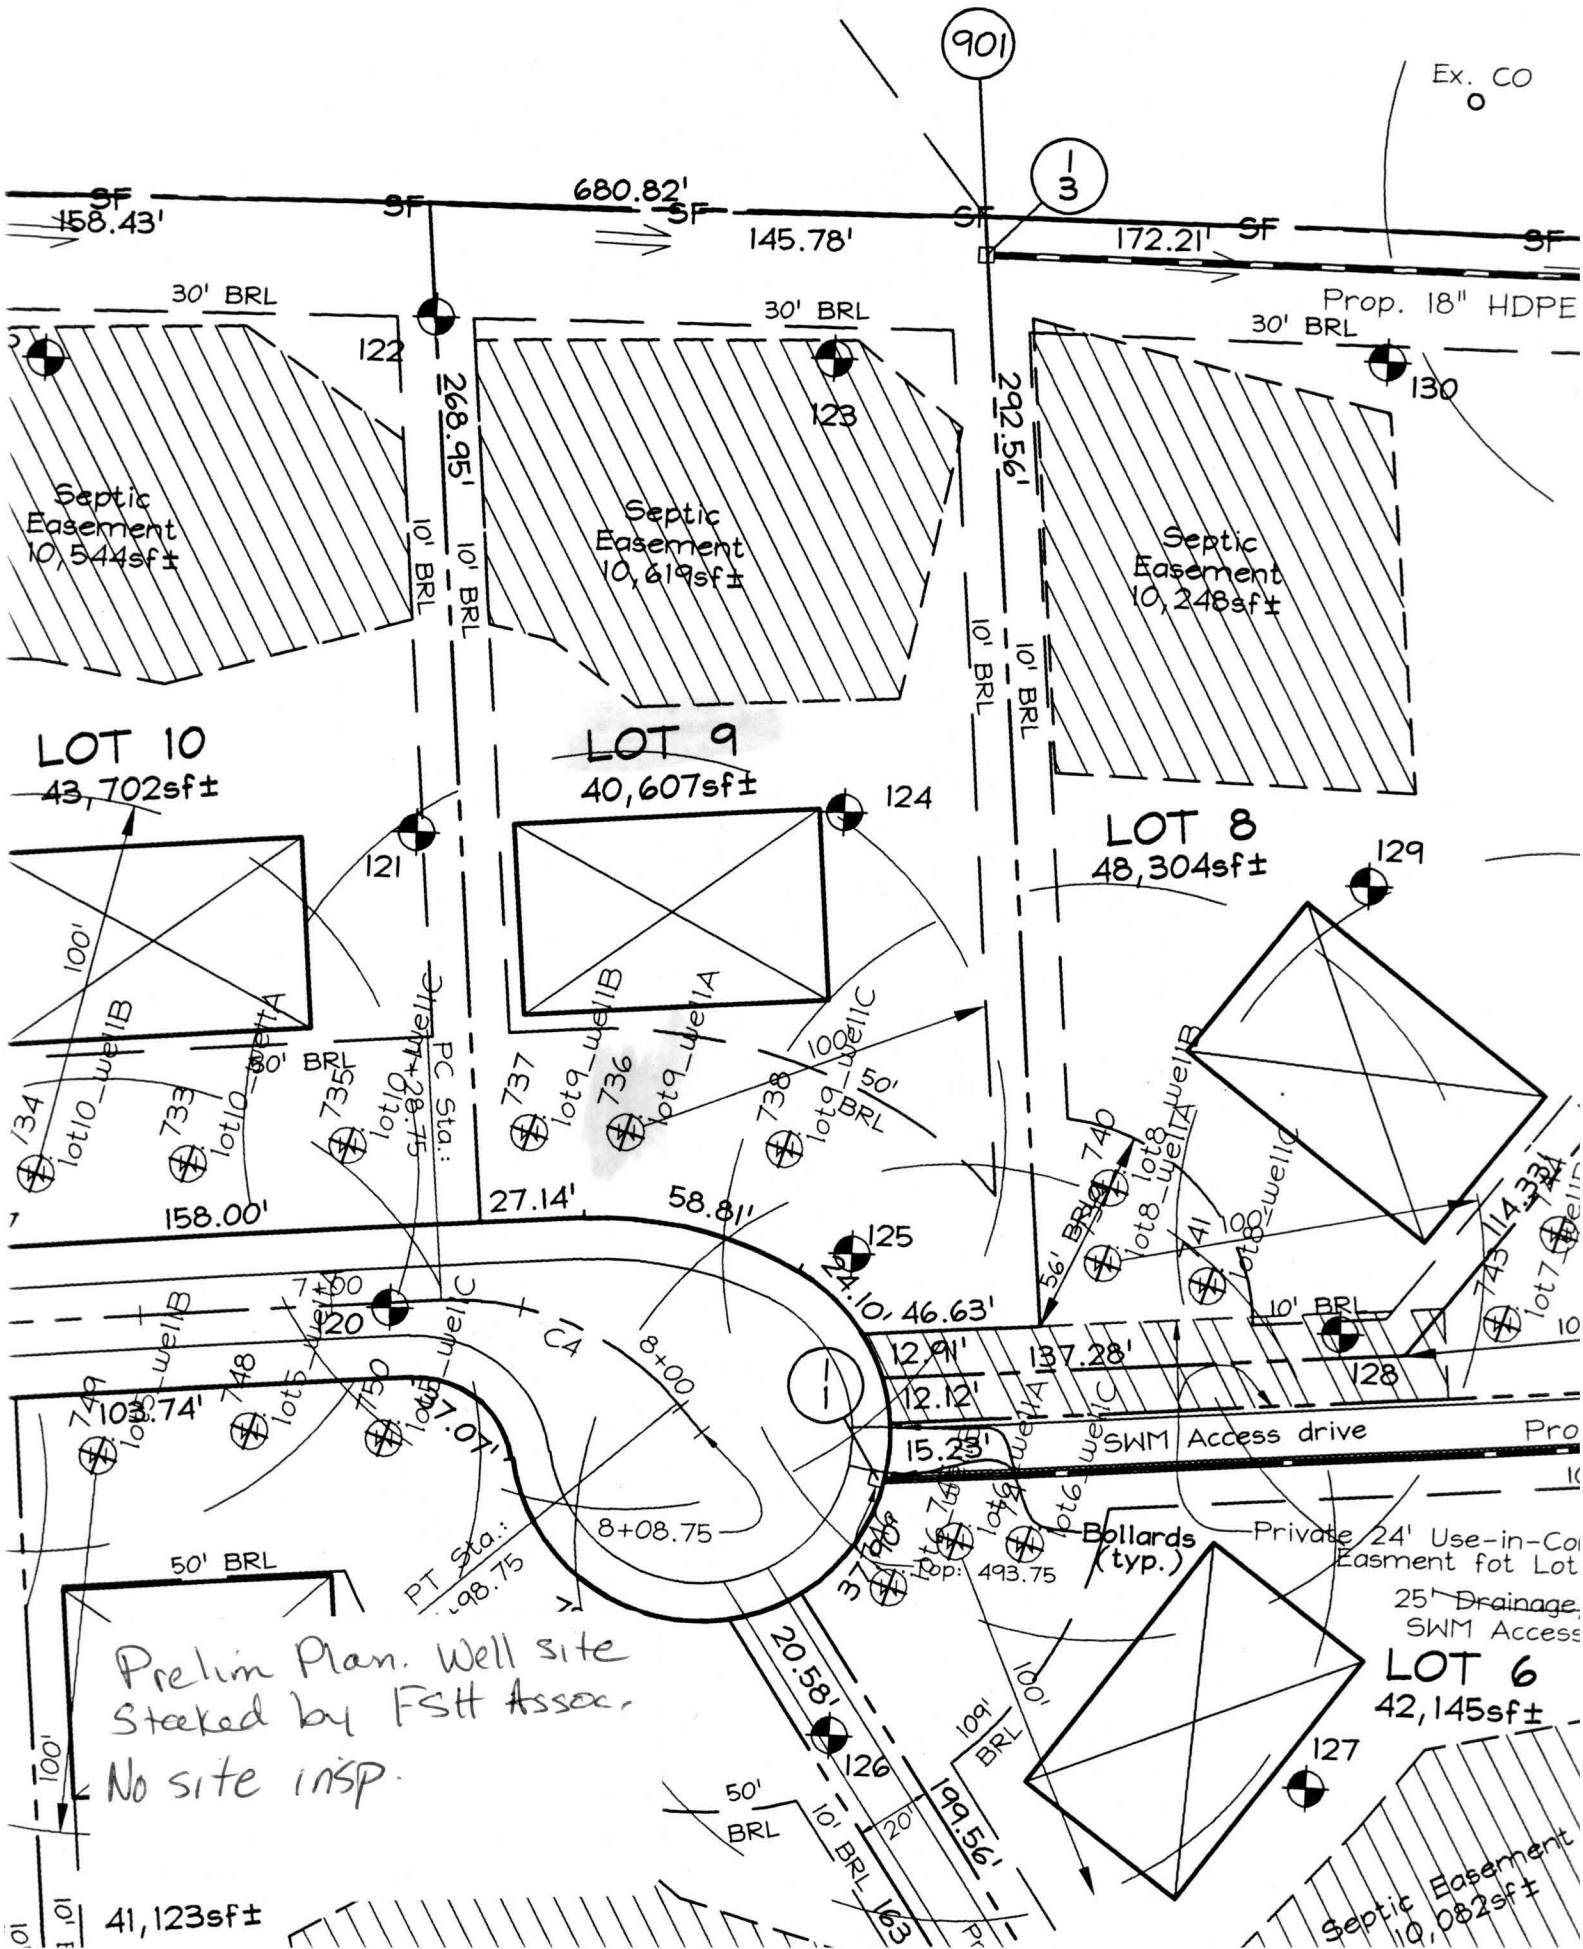 901
Ex. CO
1
3
680.82'
SF
SF
SF
SF
SF
SF
158.43'
145.78'
172.21'
30' BRL
30' BRL
Prop. 18" HDPE
30' BRL
122
123
130
268.95'
292.56'
Septic
Easement
10,544sf±
Septic
Easement
10,619sf±
Septic
Easement
10,248sf±
10' BRL
10' BRL
10' BRL
10' BRL
LOT 10
43,702sf±
LOT 9
40,607sf±
LOT 8
48,304sf±
124
121
129
100'
734
lot10_wellB
733
lot10_wellA
50' BRL
735
lot10_wellC
PC Sta.:
+28.75
737
lot9_wellB
736
lot9_wellA
738
lot9_wellC
100'
50'
BRL
740
lot8_wellB
lot8_wellA
741
lot8_wellC
100'
56' BRL
114.33'
744
743
158.00'
27.14'
58.81'
125
24.10'
46.63'
10' BRL
7+00
120
C4
8+00
1
1
12.91'
137.28'
128
12.12'
749
lot5_wellB
748
lot5_wellA
750
lot5_wellC
103.74'
15.23'
SWM Access drive
Pro
lot6_wellA
lot6_wellC
8+08.75
PT Sta.:
98.75
Top: 493.75
Bollards
(typ.)
Private 24' Use-in-Co
Easment fot Lot
25' Drainage,
SWM Access
50' BRL
Prelim Plan. Well site
Staked by FSH Assoc.
No site insp.
20.58'
126
LOT 6
42,145sf±
100'
109'
BRL
127
100'
50'
BRL
10' BRL
20'
199.56'
163
41,123sf±
Septic Easement
10,082sf±